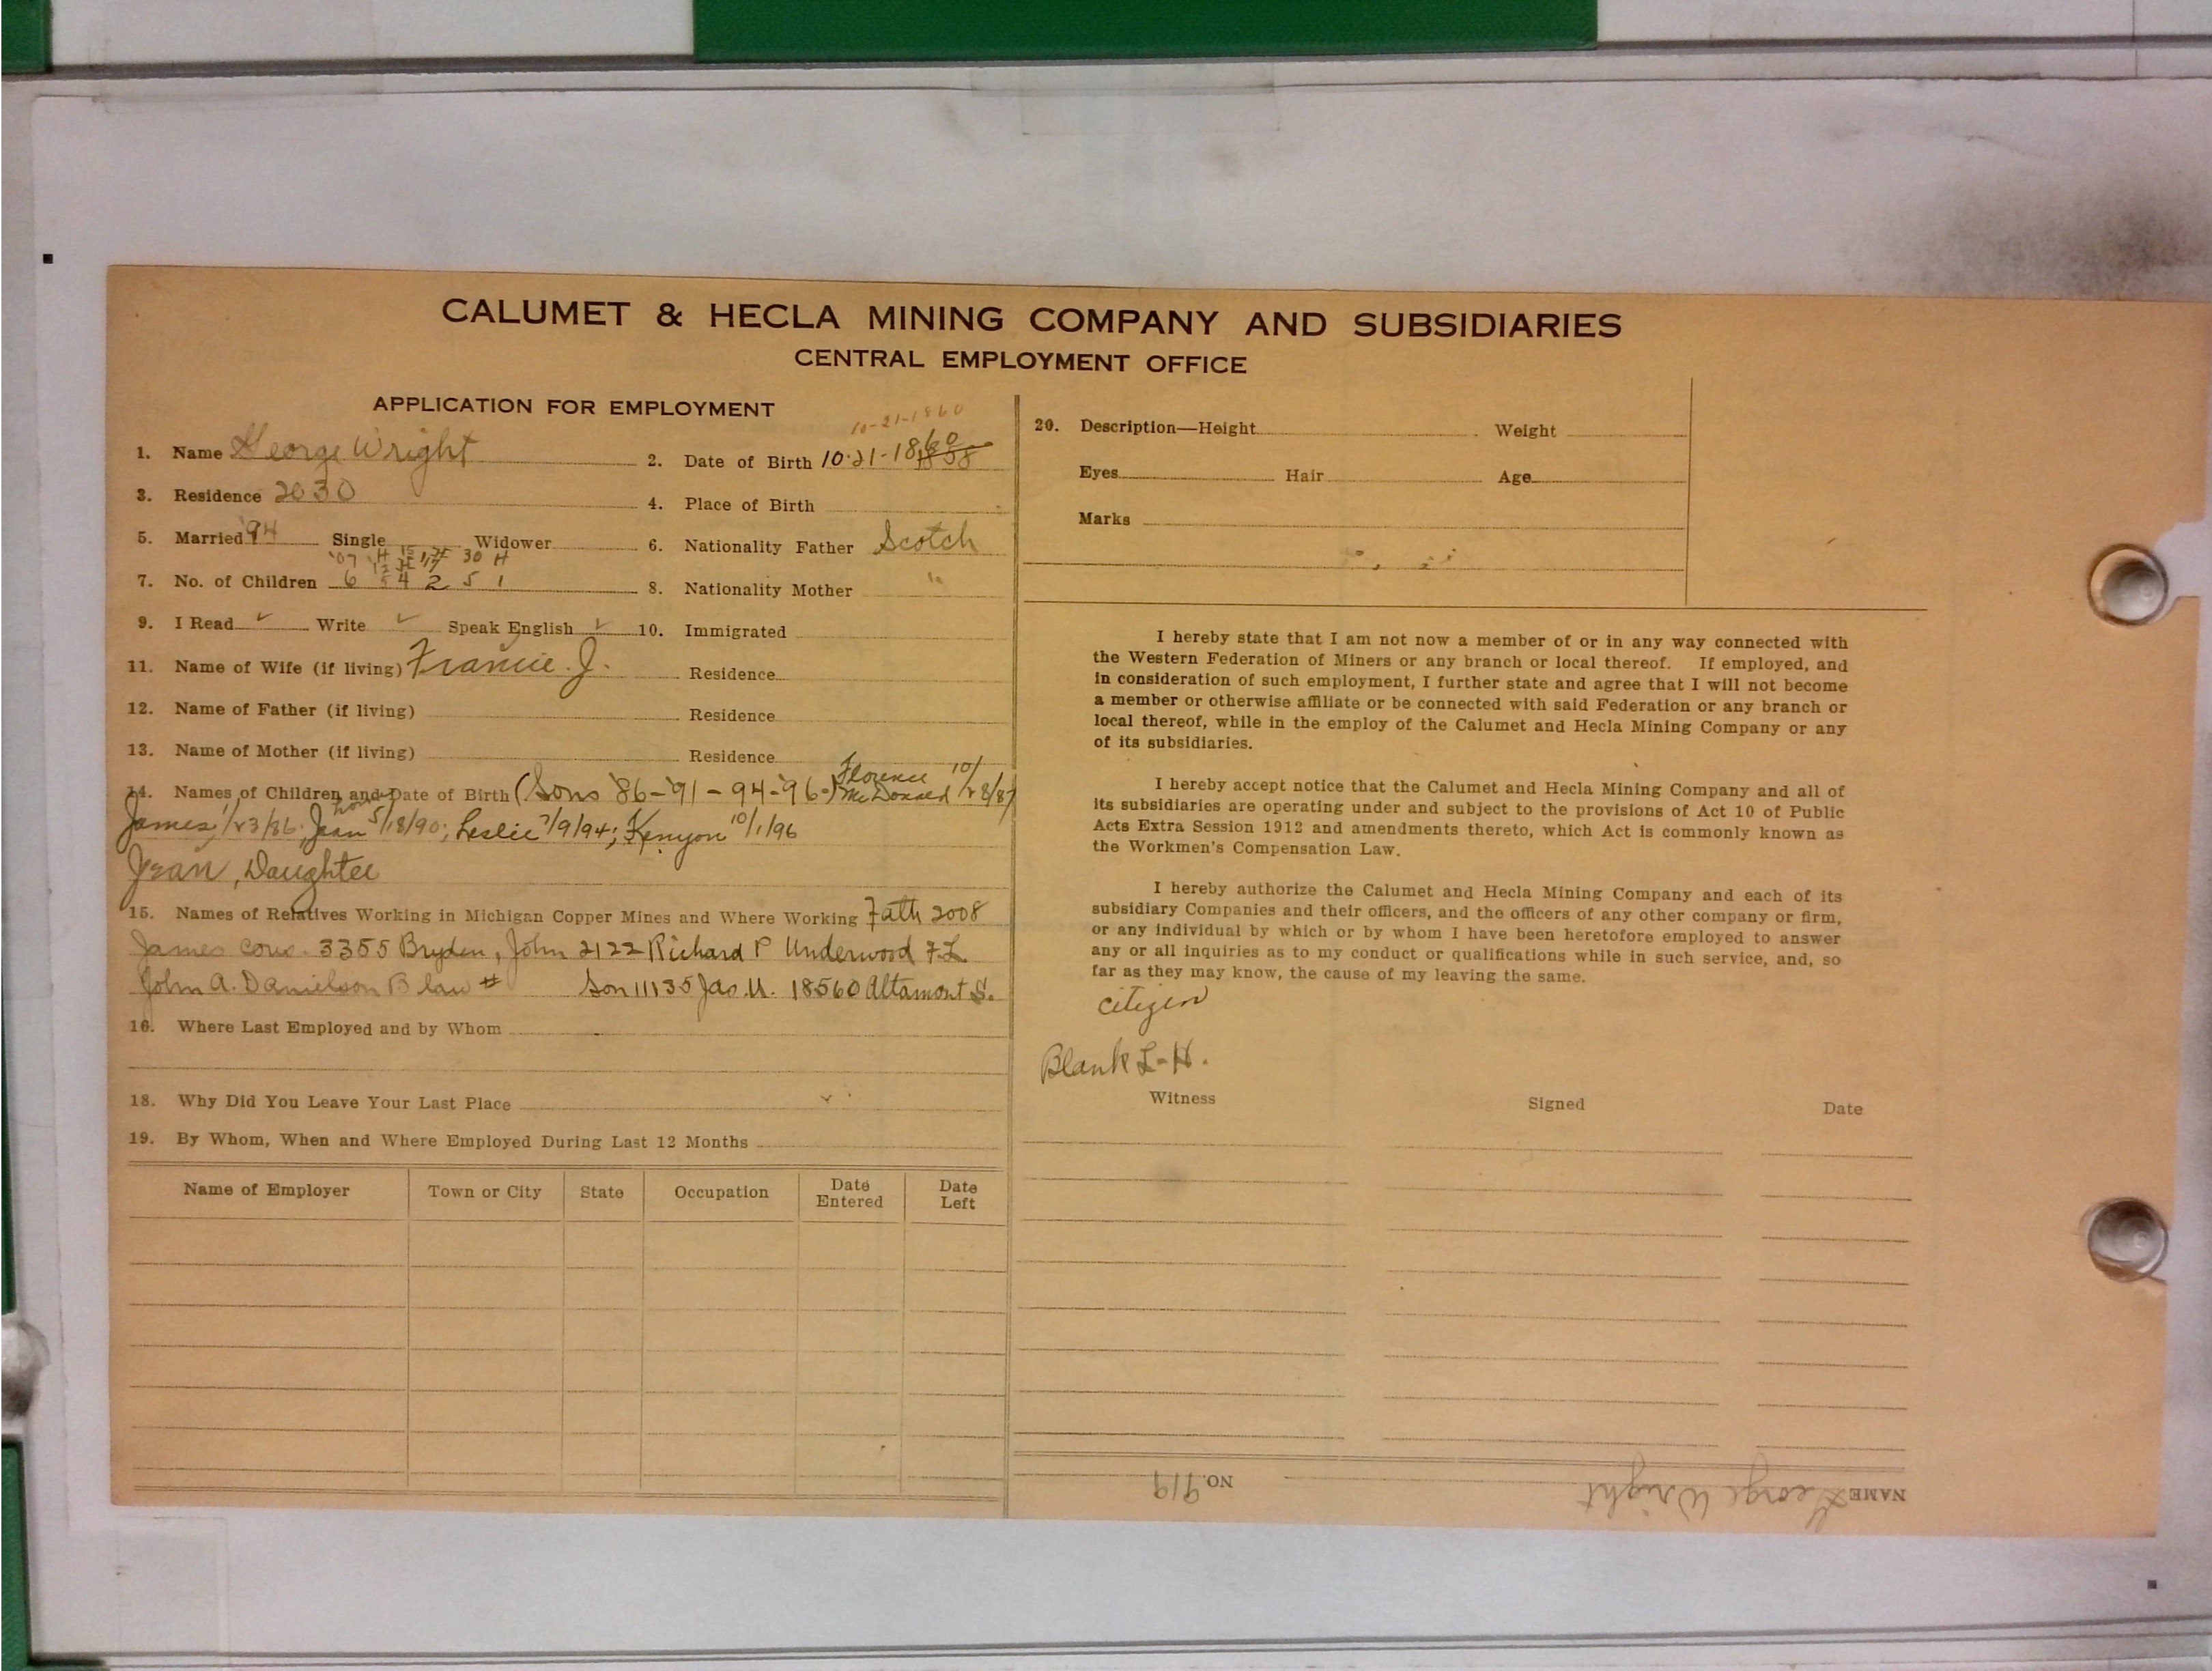 CALUMET & HECLA MINING COMPANY AND SUBSIDIARIES
CENTRAL EMPLOYMENT OFFICE
APPLICATION FOR EMPLOYMENT
10-21-1860
1. Name George Wright 2. Date of Birth 10-21-1860 1858
3. Residence 2030 4. Place of Birth
5. Married '94 Single Widower 6. Nationality Father Scotch
'07 30 H
7. No. of Children 6 5 4 2 5 1 8. Nationality Mother "
9. I Read ✓ Write ✓ Speak English ✓ 10. Immigrated
11. Name of Wife (if living) Francie. J. Residence
12. Name of Father (if living) Residence
13. Name of Mother (if living) Residence
14. Names of Children and Date of Birth (Sons '86-'91-94-'96-) Florence McDonald 10/28/87
James, 1/23/86; Jean 5/18/90; Leslie 7/9/94; Kenyon 10/1/96
Jean, Daughter
15. Names of Relatives Working in Michigan Copper Mines and Where Working Fath 2008
James cous. 3355 Bryden, John 2122 Richard P Underwood F.L
John A. Danielson B law # Son 11135 Jas. U. 18560 Altamont S.
16. Where Last Employed and by Whom
18. Why Did You Leave Your Last Place
19. By Whom, When and Where Employed During Last 12 Months
Name of Employer Town or City State Occupation Date Entered Date Left
20. Description—Height Weight
Eyes Hair Age
Marks
I hereby state that I am not now a member of or in any way connected with
the Western Federation of Miners or any branch or local thereof. If employed, and
in consideration of such employment, I further state and agree that I will not become
a member or otherwise affiliate or be connected with said Federation or any branch or
local thereof, while in the employ of the Calumet and Hecla Mining Company or any
of its subsidiaries.
I hereby accept notice that the Calumet and Hecla Mining Company and all of
its subsidiaries are operating under and subject to the provisions of Act 10 of Public
Acts Extra Session 1912 and amendments thereto, which Act is commonly known as
the Workmen's Compensation Law.
I hereby authorize the Calumet and Hecla Mining Company and each of its
subsidiary Companies and their officers, and the officers of any other company or firm,
or any individual by which or by whom I have been heretofore employed to answer
any or all inquiries as to my conduct or qualifications while in such service, and, so
far as they may know, the cause of my leaving the same.
citizen
Blank L-H.
Witness Signed Date
NAME George Wright NO. 919